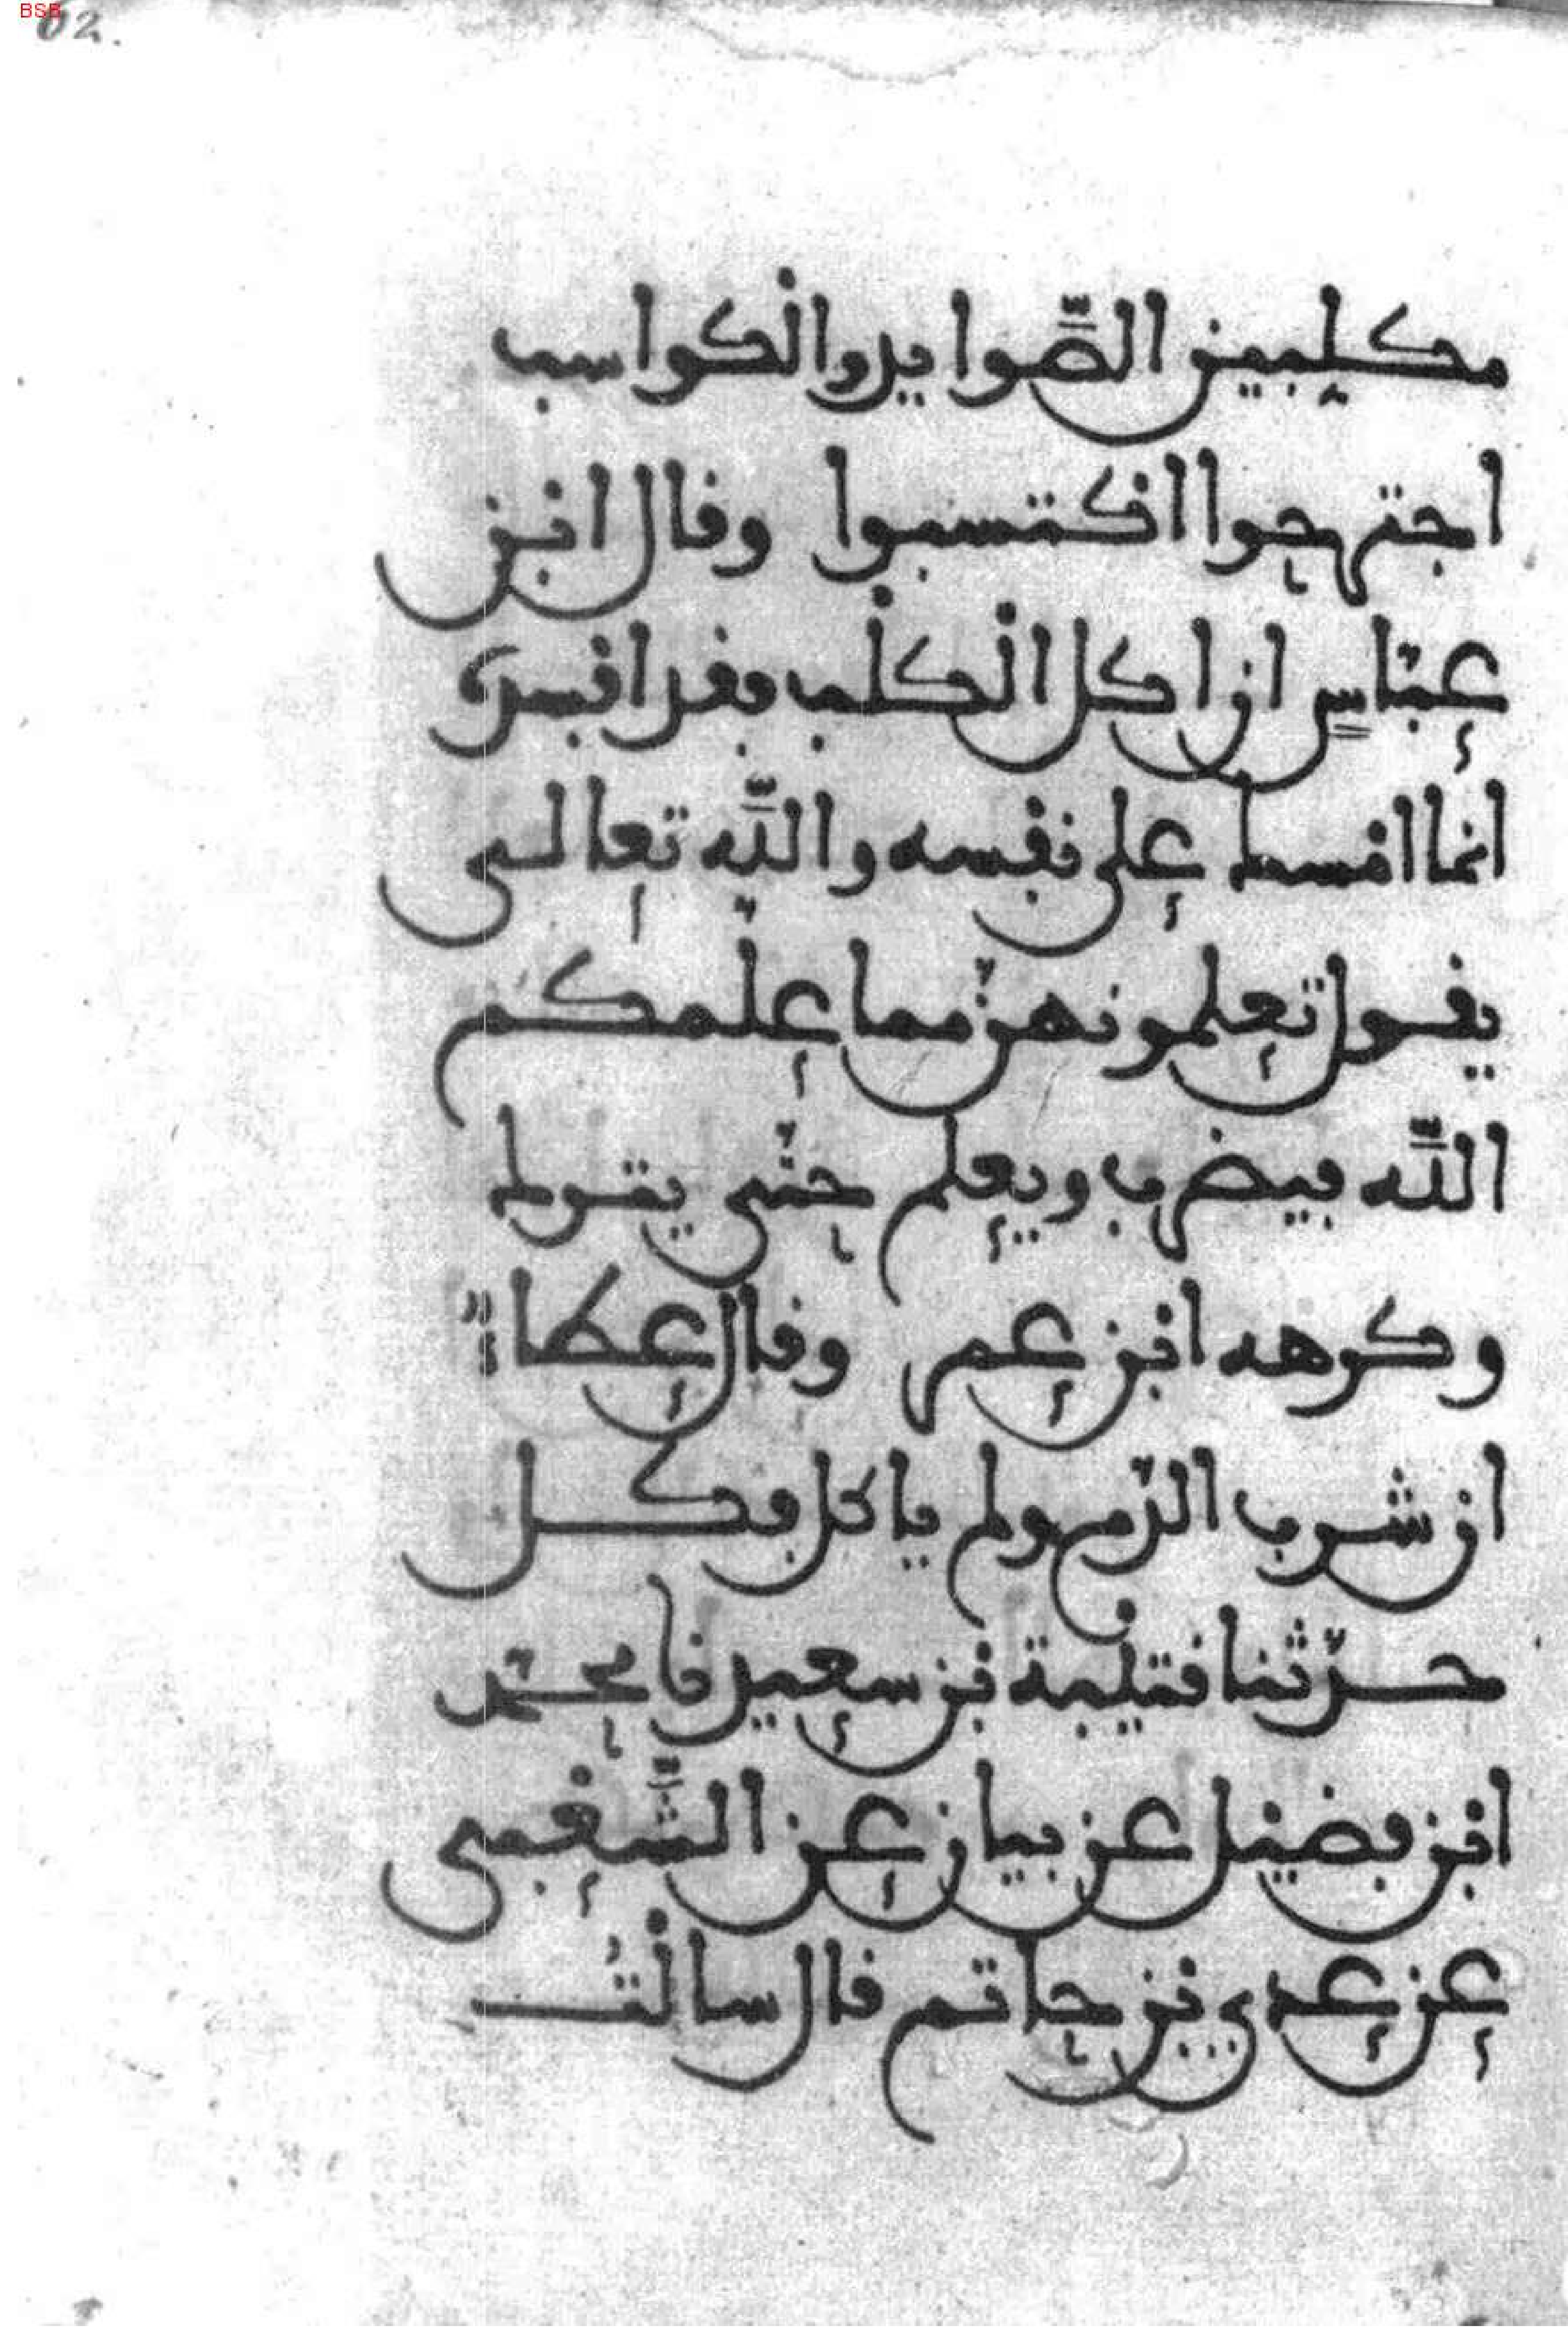 BSB
62.
مكلبين الصّوايد والكواسب
اجترحوا اكتسبوا وقال ابن
عبّاسٍ ان اكل الكلب فقد افسده
انما امسك على نفسه واللّه تعالى
يقول تعلمونهنّ مما علّمكم
اللّه فيضرب ويعلم حتّى يترك
وكرهه ابن عمر وقال عطاءٌ
ان شرب الدّم ولم ياكل فكل
حدّثنا قتيبة بن سعيد نا محمد
ابن فضيل عن بيان عن الشّعبي
عن عدي بن حاتم قال سالتُ